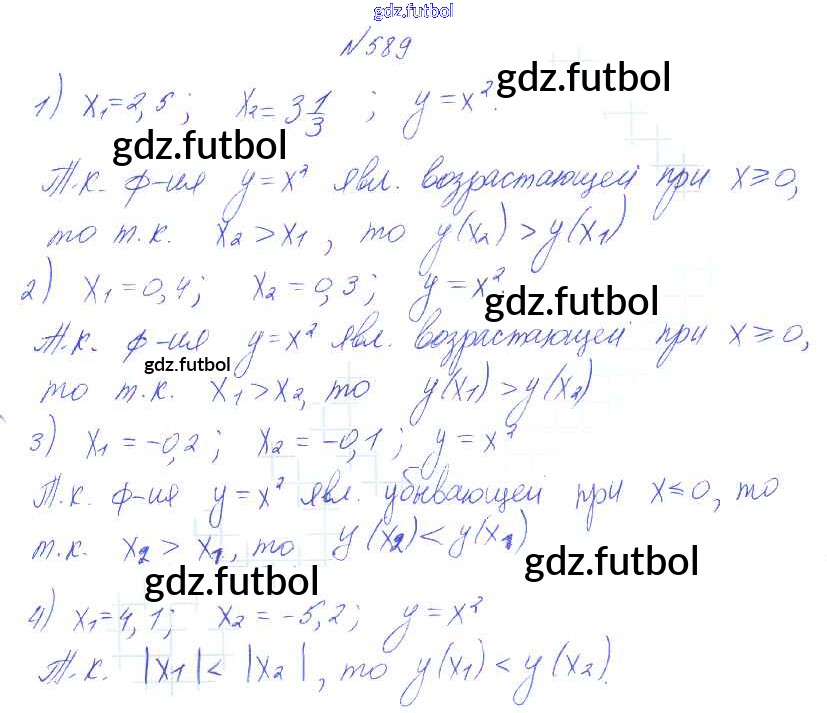 gdz.futbol
№589
1) x₁=2,5; x₂=3 1/3; y=x². gdz.futbol
gdz.futbol
Т.к. ф-ия y=x² явл. возрастающей при x≥0,
то т.к. x₂>x₁, то y(x₂)>y(x₁)
2) x₁=0,4; x₂=0,3; y=x² gdz.futbol
Т.к. ф-ия y=x² явл. возрастающей при x≥0,
gdz.futbol
то т.к. x₁>x₂, то y(x₁)>y(x₂)
3) x₁=-0,2; x₂=-0,1; y=x²
Т.к. ф-ия y=x² явл. убывающей при x≤0, то
т.к. x₂>x₁, то y(x₂)<y(x₁)
gdz.futbol gdz.futbol
4) x₁=4,1; x₂=-5,2; y=x²
Т.к. |x₁|<|x₂|, то y(x₁)<y(x₂).